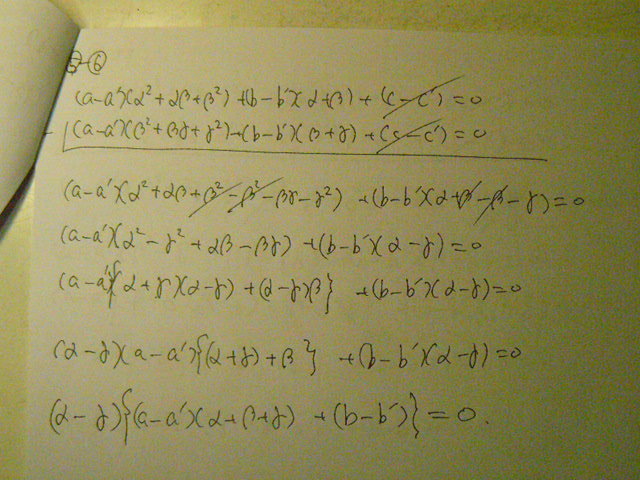 ⑤-⑥
(a-a')(α²+αβ+β²)+(b-b')(α+β)+(c-c')=0
-) (a-a')(β²+βγ+γ²)+(b-b')(β+γ)+(c-c')=0
(a-a')(α²+αβ+β²-β²-βγ-γ²) +(b-b')(α+β-β-γ)=0
(a-a')(α²-γ²+αβ-βγ) +(b-b')(α-γ)=0
(a-a'){(α+γ)(α-γ)+(α-γ)β} +(b-b')(α-γ)=0
(α-γ)(a-a'){(α+γ)+β²} +(b-b')(α-γ)=0
(α-γ){(a-a')(α+β+γ) +(b-b')}=0.